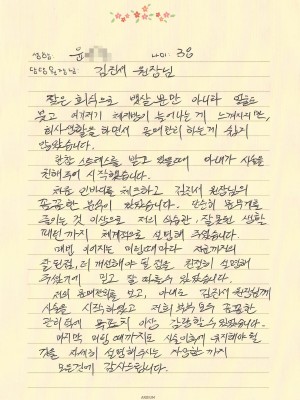 성함 : 윤 나이 : 38
담당 원장님 : 김진서 원장님
잦은 회식으로 뱃살 뿐만 아니라 얼굴도
붓고 여기저기 체지방이 늘어나는 게 느껴지지만,
회사생활을 하면서 몸매관리 하는게 쉽지
않았습니다.
한참 스트레스를 받고 있을때 아내가 시술을
권해주어 시작했습니다.
처음 인바디를 체크하고 김진서 원장님의
꼼꼼한 분석이 있었습니다. 단순히 몸무게를
줄이는 것 이상으로 저의 식습관, 잘못된 생활
패턴까지 체계적으로 설명해 주셨습니다.
매번 이어지는 미팅때마다 지금까지의
잘된점, 더 개선해야 될 점을 친절히 설명해
주셨기에 믿고 잘 따를수 있었습니다.
저의 몸매변화를 보고, 아내도 김진서 원장님께
시술을 시작하였고 저희 부부 모두 꼼꼼한
관리 덕에 목표치 이상 감량할 수 있었습니다.
마지막 미팅 때까지도 시술이후에 유지해야 할
것을 자세히 설명해주시는 자상함까지
모든것에 감사드립니다.